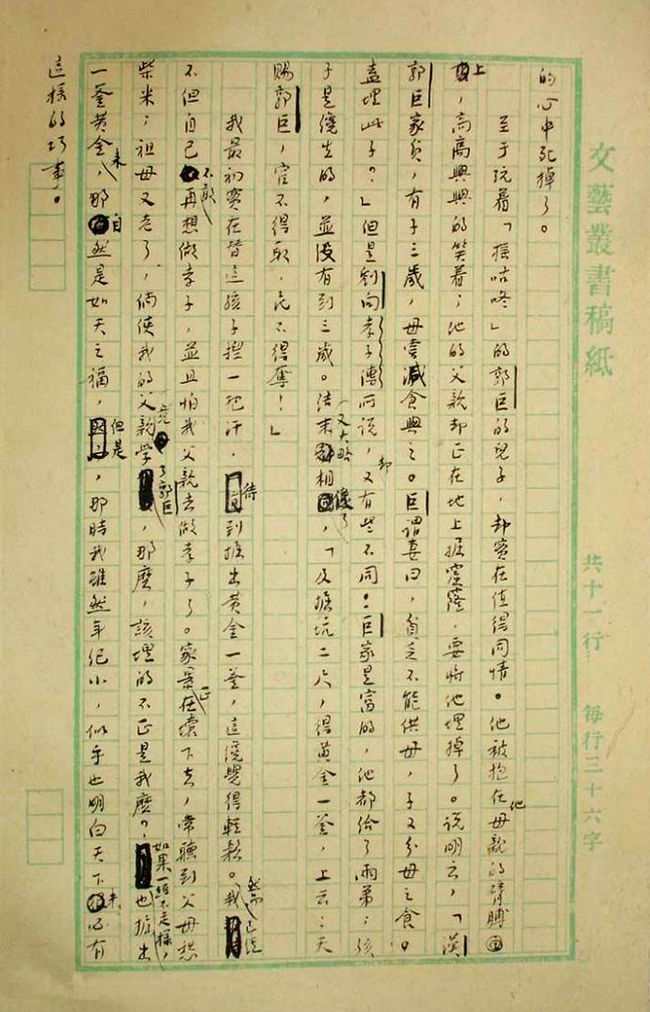 文藝叢書稿紙　共十一行　每行三十六字
的心中死掉了。
至于玩着「搖咕咚」的郭巨的兒子，却實在值得同情。他被抱在他母親的臂膊
上，高高興興的笑着；他的父親却正在地上掘窟窿，要將他埋掉了。說明云，「漢
郭巨家貧，有子三歲，母嘗減食與之。巨謂妻曰，貧乏不能供母，子又分母之食。
盍埋此子？」但是劉向孝子傳所說，却又有些不同：巨家是富的，他都給了兩弟；孩
子是纔生的，並沒有到三歲。結末又大略相像了，「及掘坑二尺，得黃金一釜，上云：天
賜郭巨，官不得取，民不得奪！」
我最初實在替這孩子捏一把汗，待到掘出黃金一釜，這纔覺得輕鬆。然而我已經
不但自己不敢再想做孝子，並且怕我父親去做孝子了。家景正在壞下去，常聽到父母愁
柴米；祖母又老了，倘使我的父親竟學了郭巨，那麼，該埋的不正是我麼？如果一絲不走樣，也掘出
一釜黃金來，那自然是如天之福，但是，那時我雖然年紀小，似乎也明白天下未必有
這樣的巧事。